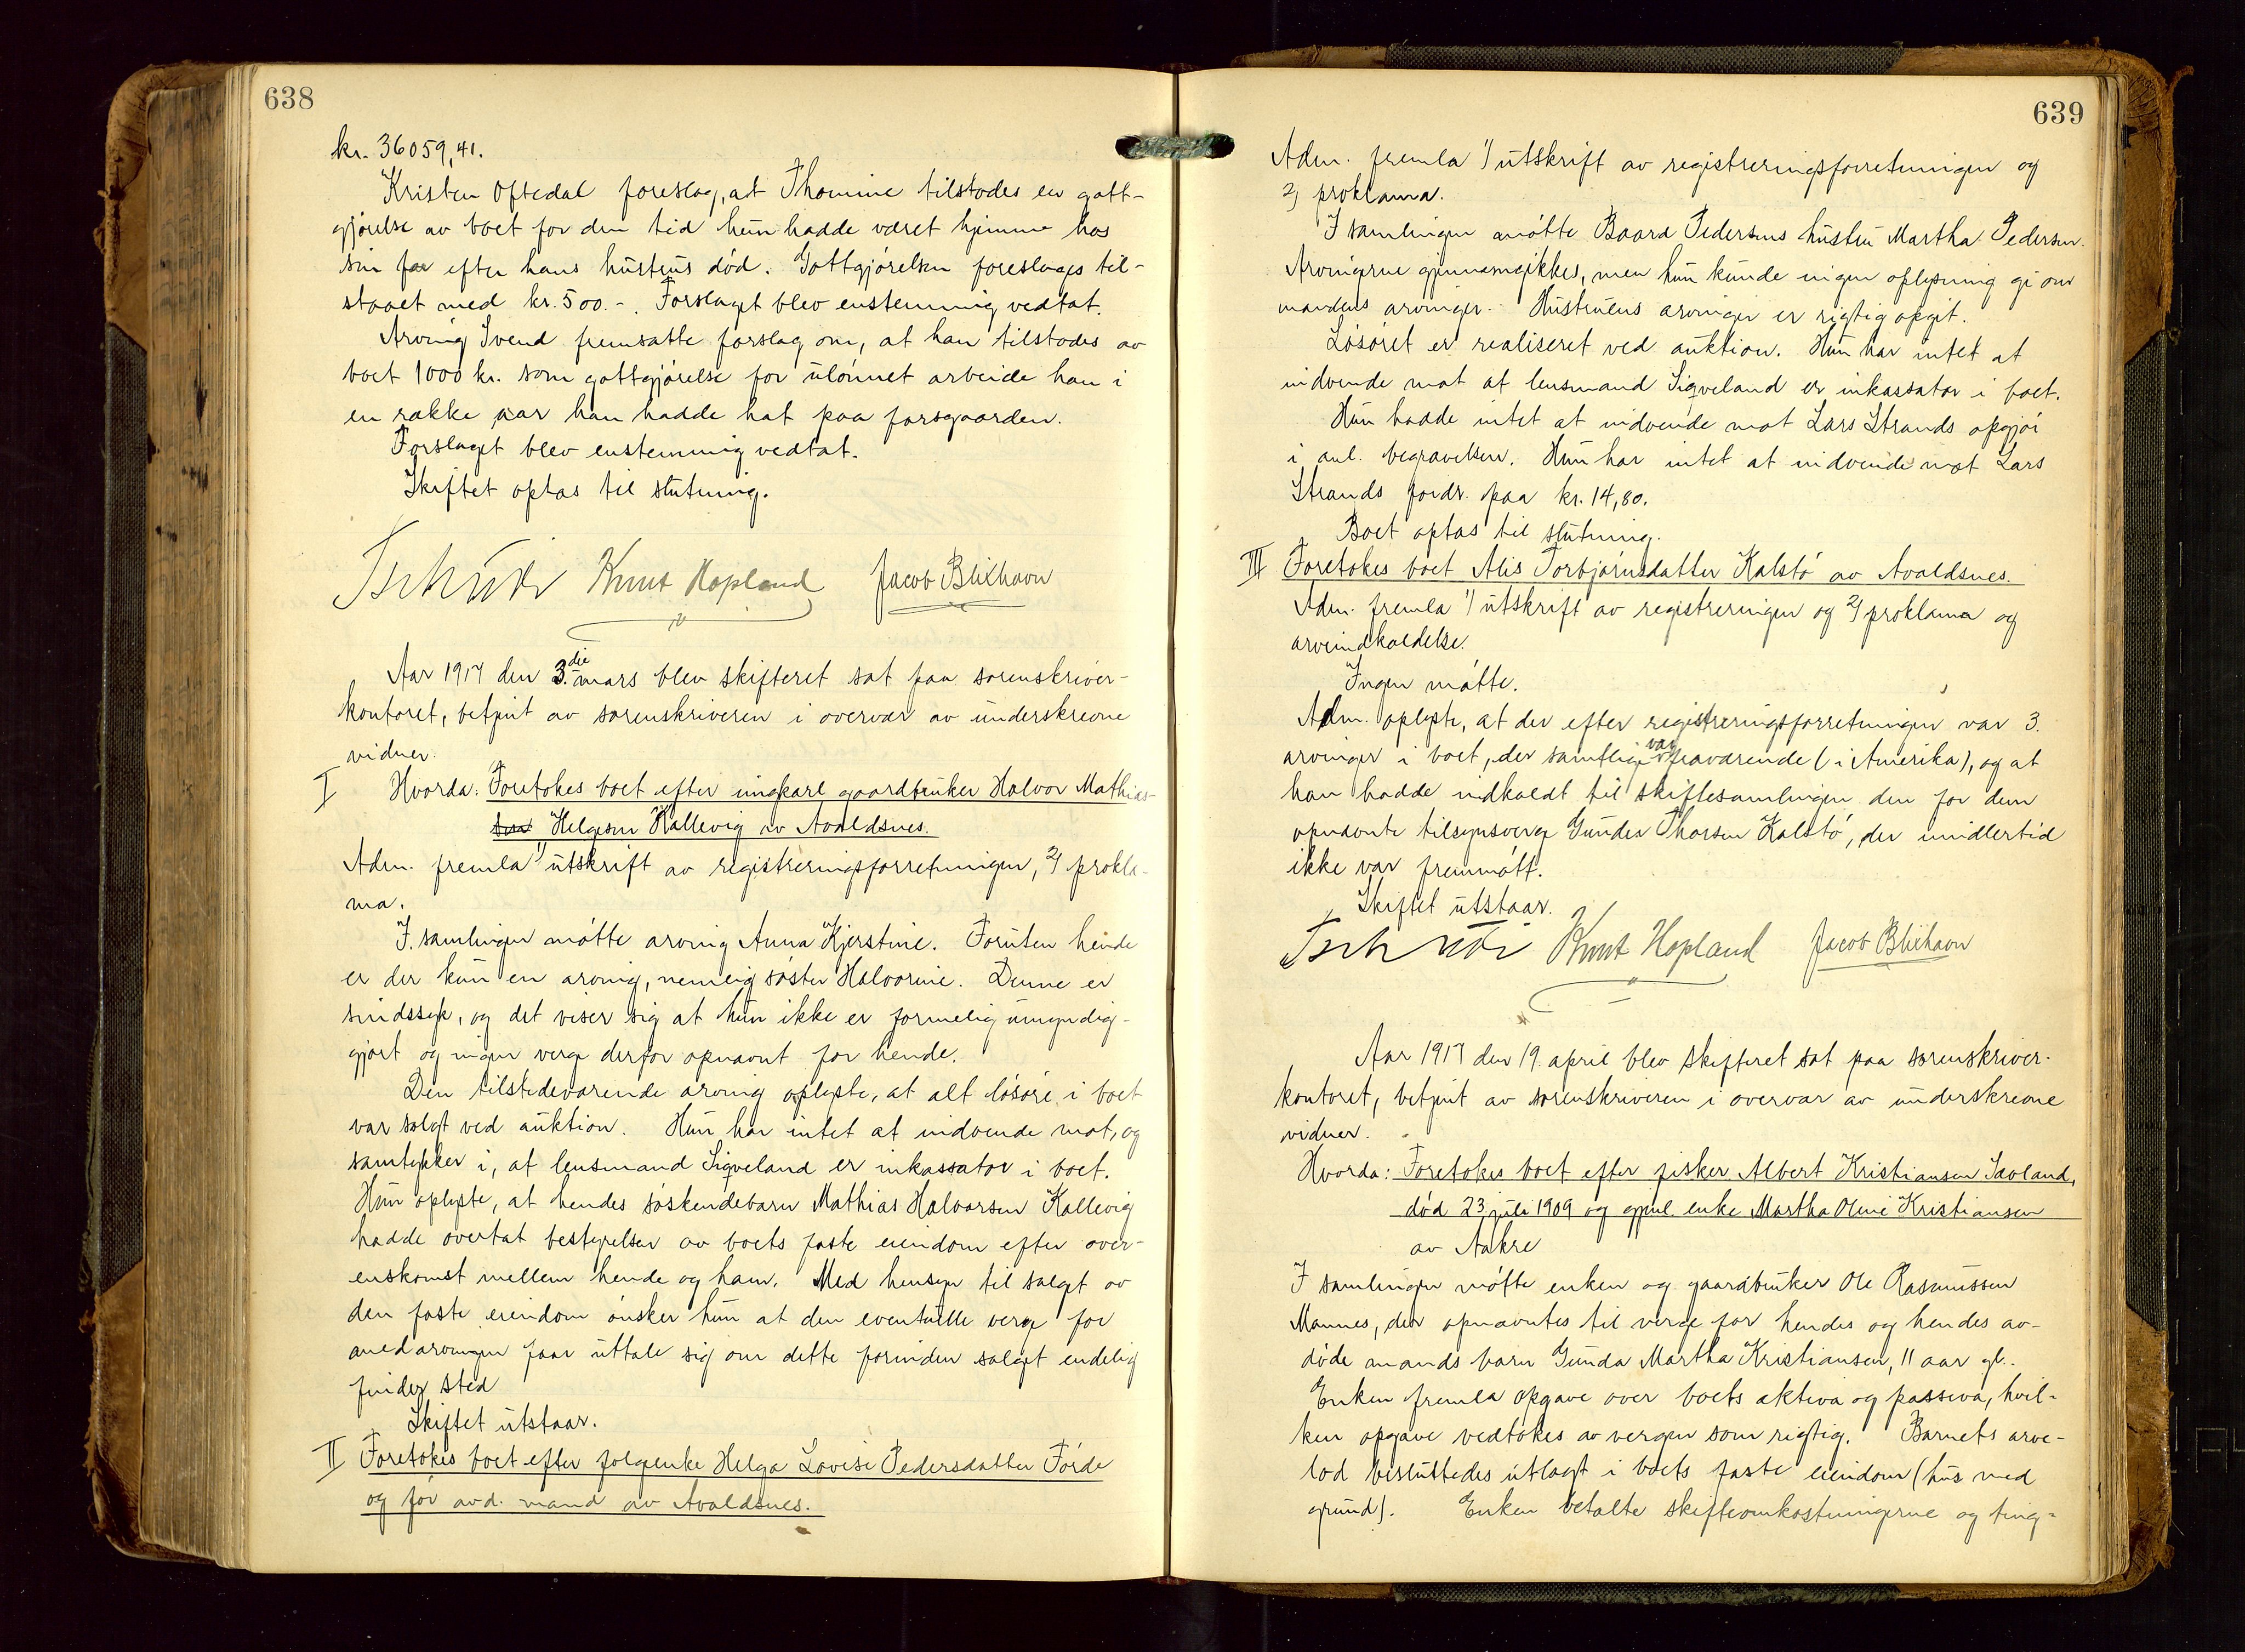 638
kr. 36059,41.
Kristen Oftedal foreslog, at Thomine tilstodes en gott-
gjørelse av boet for den tid hun hadde været hjemme hos
sin far efter hans hustrus død. Gottgjørelsen foresloges til-
staaet med kr. 500.-. Forslaget blev enstemmig vedtat.
Arving Svend fremsatte forslag om, at han tilstodes av
boet 1000 kr. som gottgjørelse for ulønnet arbeide han i
en række aar han hadde hat paa farsgaarden.
Forslaget blev enstemmig vedtat.
Skiftet optas til slutning.
Tschudi Knut Hopland Jacob Blikhavn
Aar 1917 den 3.die mars blev skifteret sat paa sorenskriver-
kontoret, betjent av sorenskriveren i overvær av underskrevne
vidner.
I Hvorda: Foretokes boet efter ungkarl gaardbruker Halvor Mathias-
sen Helgesen Kallevig av Avaldsnes.
Adm. fremla 1) utskrift av registreringsforretningen, 2) prokla-
ma.
I samlingen møtte arving Anna Kjerstine. Foruten hende
er der kun en arving, nemlig søster Halvorine. Denne er
sindssyk, og det viser sig at hun ikke er formelig umyndig-
gjort og ingen verge derfor opnævnt for hende.
Den tilstedeværende arving oplyste, at alt løsøre i boet
var solgt ved auktion. Hun har intet at indvende mot, og
samtykker i, at lensmand Sigveland er inkassator i boet.
Hun oplyste, at hendes søskendebarn Mathias Halvorsen Kallevig
hadde overtat bestyrelsen av boets faste eiendom efter over-
enskomst mellem hende og ham. Med hensyn til salget av
den faste eiendom ønsker hun at den eventuelle verge for
medarvingen faar uttale sig om dette forinden salget endelig
finder sted
Skiftet utstaar.
II Foretokes boet efter følgenke Helga Lovise Pedersdatter Førde
og før avd. mand av Avaldsnes.
639
Adm. fremla 1) utskrift av registreringsforretningen og
2) proklama.
I samlingen møtte Baard Pedersens hustru Martha Pedersen.
Arvingerne gjennemgikkes, men hun kunde ingen oplysning gi om
mandens arvinger. Hustruens arvinger er rigtig opgit.
Løsøret er realiseret ved auktion. Hun har intet at
indvende mot at lensmand Sigveland er inkassator i boet.
Hun hadde intet at indvende mot Lars Strands opgjør
i anl. begravelsen. Hun har intet at indvende mot Lars
Strands fordr. paa kr. 14,80.
Boet optas til slutning.
III Foretokes boet Alis Torbjørnsdatter Kalstø av Avaldsnes.
Adm. fremla 1) utskrift av registreringen og 2) proklama og
arveindkaldelse.
Ingen møtte.
Adm. oplyste, at der efter registreringsforretningen var 3
arvinger i boet, der samtlige var fraværende (i Amerika), og at
han hadde indkaldt til skiftesamlingen den for dem
opnævnte tilsynsverge Gunder Thorsen Kalstø, der imidlertid
ikke var fremmøtt.
Skiftet utstaar.
Tschudi Knut Hopland Jacob Blikhavn
Aar 1917 den 19. april blev skifteret sat paa sorenskriver-
kontoret, betjent av sorenskriveren i overvær av underskrevne
vidner.
Hvorda: Foretokes boet efter fisker Albert Kristiansen Sævland,
død 23 juli 1909 og gjenl. enke Martha Oline Kristiansen
av Aakre
I samlingen møtte enken og gaardbruker Ole Rasmussen
Mannes, der opnævntes til verge for hendes og hendes av-
døde mands barn Gunda Martha Kristiansen, 11 aar gl.
Enken fremla opgave over boets aktiva og passiva, hvil-
ken opgave vedtokes av vergen som rigtig. Barnets arve-
lod besluttedes utlagt i boets faste eiendom (hus med
grund). Enken betalte skifteomkostningerne og ting-